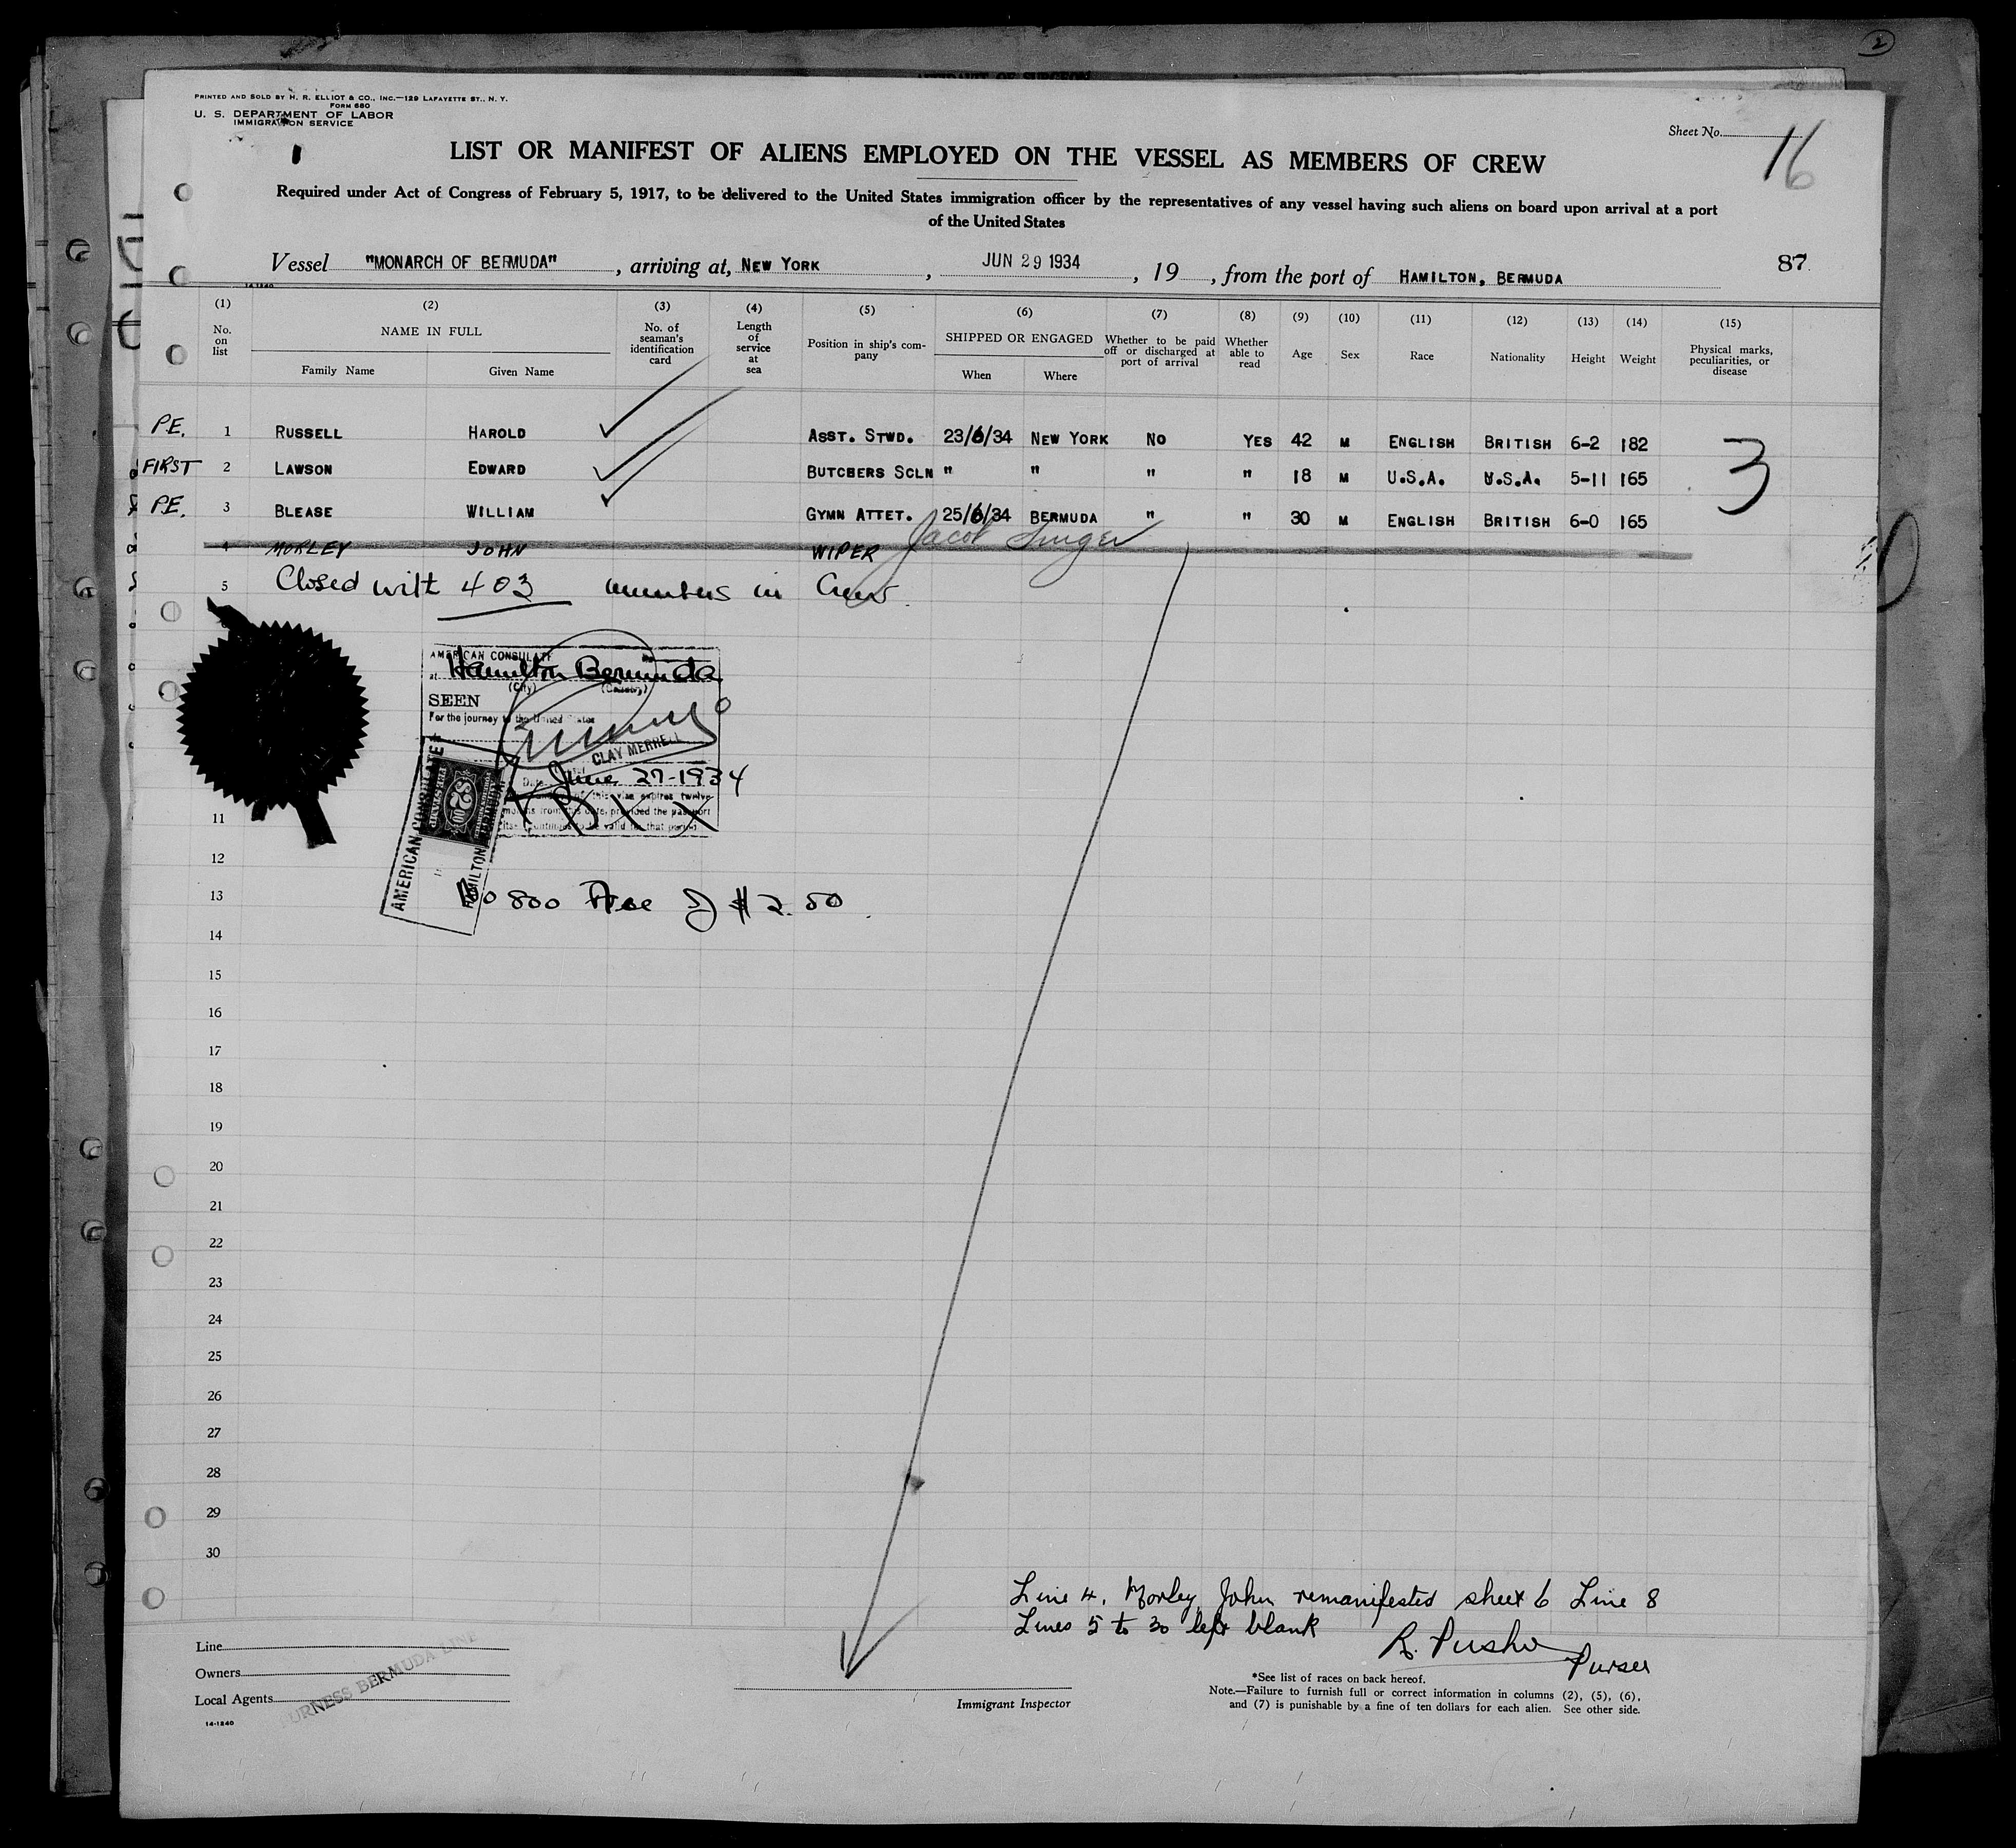 2
AFFIDAVIT OF SURGEON
PRINTED AND SOLD BY H. R. ELLIOT & CO., INC.—129 LAFAYETTE ST., N. Y.
FORM 680
U. S. DEPARTMENT OF LABOR
IMMIGRATION SERVICE
Sheet No. 16
LIST OR MANIFEST OF ALIENS EMPLOYED ON THE VESSEL AS MEMBERS OF CREW
Required under Act of Congress of February 5, 1917, to be delivered to the United States immigration officer by the representatives of any vessel having such aliens on board upon arrival at a port
of the United States
Vessel "MONARCH OF BERMUDA", arriving at, NEW YORK, JUN 29 1934, 19, from the port of HAMILTON, BERMUDA 87
14-1240
(1) (2) (3) (4) (5) (6) (7) (8) (9) (10) (11) (12) (13) (14) (15)
No. on list NAME IN FULL No. of seaman's identification card Length of service at sea Position in ship's company SHIPPED OR ENGAGED Whether to be paid off or discharged at port of arrival Whether able to read Age Sex Race Nationality Height Weight Physical marks, peculiarities, or disease
Family Name Given Name When Where
P.E. 1 RUSSELL HAROLD ASST. STWD. 23/6/34 NEW YORK NO YES 42 M ENGLISH BRITISH 6-2 182
FIRST 2 LAWSON EDWARD BUTCBERS SCLN " " " " 18 M U.S.A. U.S.A. 5-11 165 3
P.E. 3 BLEASE WILLIAM GYMN ATTET. 25/6/34 BERMUDA " " 30 M ENGLISH BRITISH 6-0 165
4 MORLEY JOHN WIPER Jacob Singer
5 Closed with 403 members in Crew.
AMERICAN CONSULATE
at Hamilton Bermuda
(City) (Country)
SEEN
For the journey to the United States
CLAY MERRELL
Date June 27-1934
of this visa expires twelve
months from this date, provided the passport
continues to be valid for that period
AMERICAN CONSULATE
HAMILTON BERMUDA
$2.00
11
12
13 No 800 Fee of $2.50
14
15
16
17
18
19
20
21
22
23
24
25
26
27
28
29
30
Line 4, Morley, John remanifested sheet 6 Line 8
Lines 5 to 30 left blank
Purser
Line
Owners
Local Agents
FURNESS BERMUDA LINE
14-1240
Immigrant Inspector
*See list of races on back hereof.
Note.—Failure to furnish full or correct information in columns (2), (5), (6),
and (7) is punishable by a fine of ten dollars for each alien. See other side.